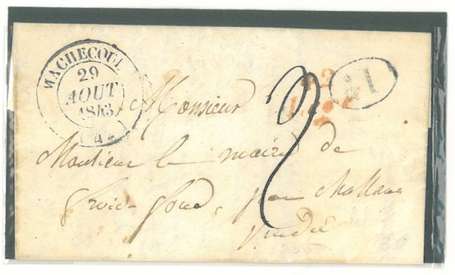 MACHECOUL
29
AOUT
1843
2
Monsieur
Monsieur le maire de
froid-fond, par Challans
Vendée